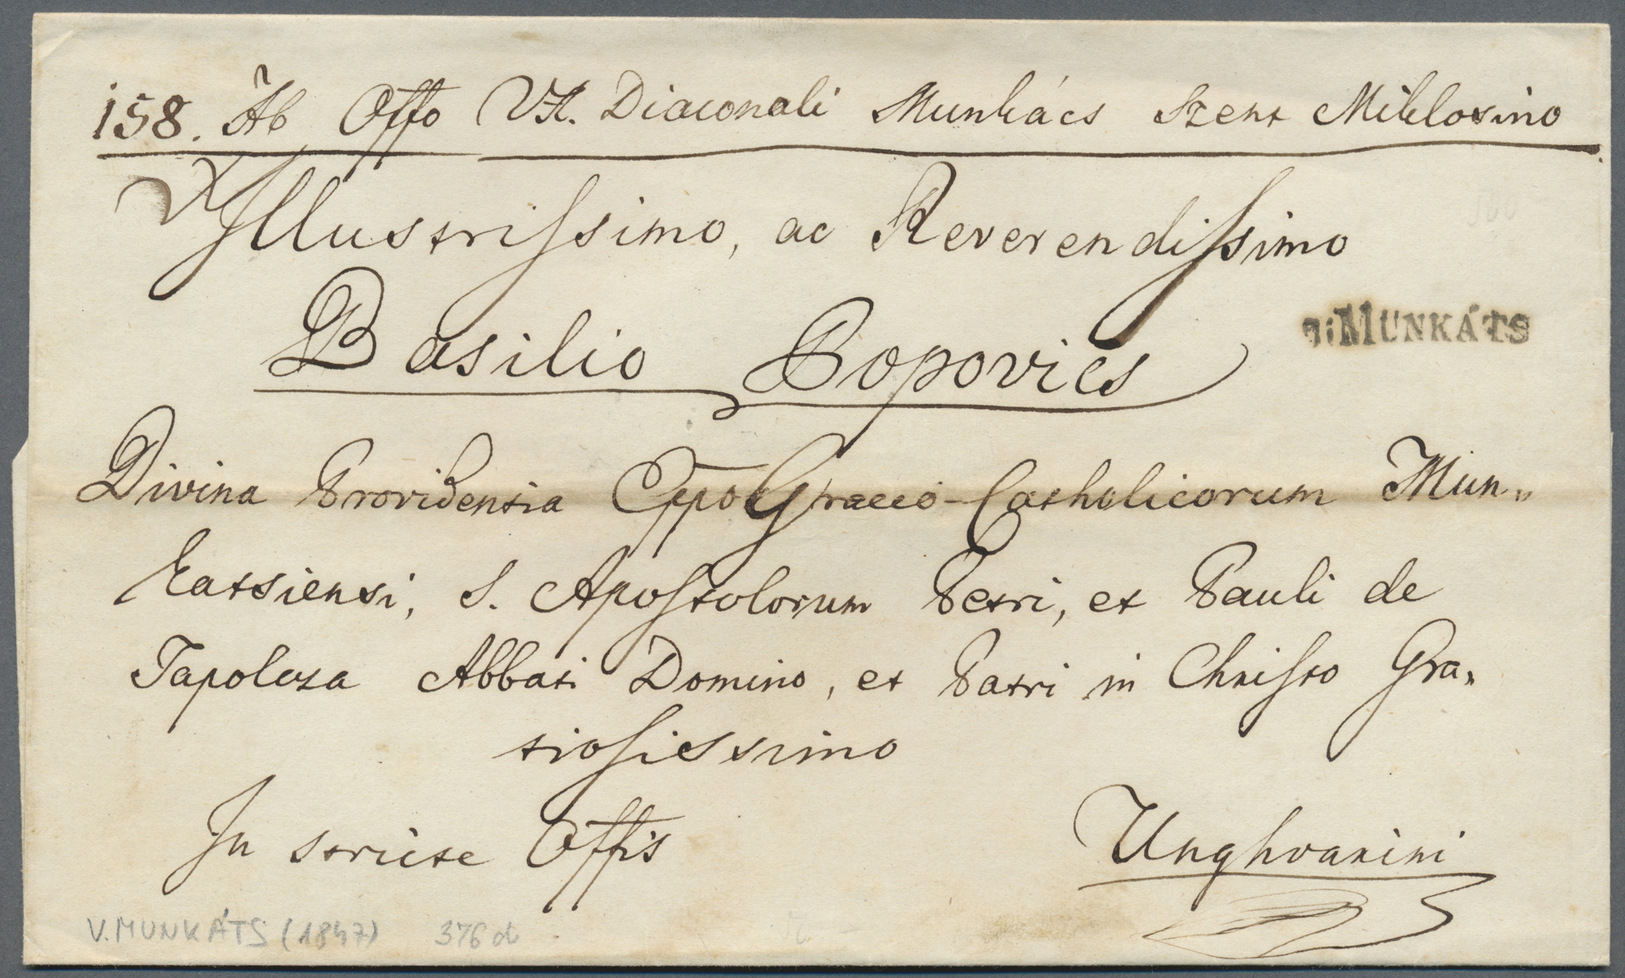 158. Ab Offo VA. Diaconali Munkács Szent Miklosino
Illustrissimo, ac Reverendissimo
Basilio Popovics
V: MUNKÁTS
Divina Providentia Eppo Graeco-Catholicorum Mun-
katsiensi, S. Apostolorum Petri, et Pauli de
Tapolcza Abbati Domino, et Patri in Christo Gra-
tiosissimo
In stricte Offis
Unghvarini
V. MUNKÁTS (1847) 376 d